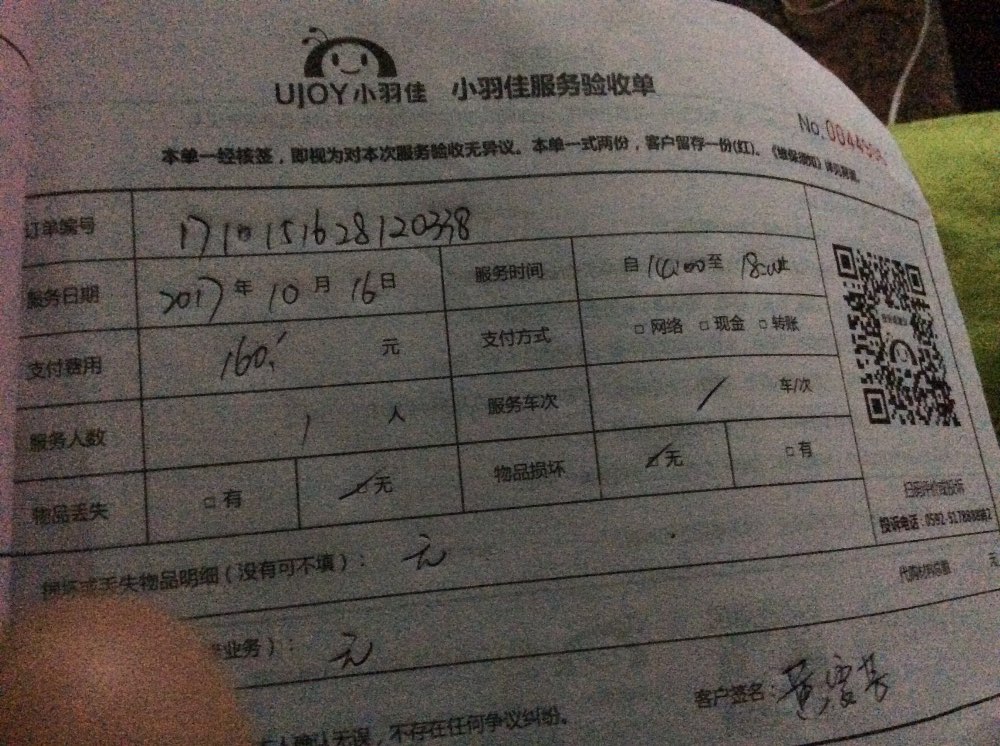 UJOY小羽佳 小羽佳服务验收单
No.
本单一经核签，即视为对本次服务验收无异议。本单一式两份，客户留存一份(红)。
订单编号 1710151628120338
服务日期 2017年10月16日 服务时间 自14:00至18:00
支付费用 160. 元 支付方式 □网络 □现金 □转账
服务人数 1 人 服务车次 / 车/次
物品丢失 □有 □无 物品损坏 □无 □有
扫码评价或投诉
投诉电话:0592-
损坏或丢失物品明细（没有可不填）： 元
业务）： 元
客户签名:
人确认无误，不存在任何争议纠纷。